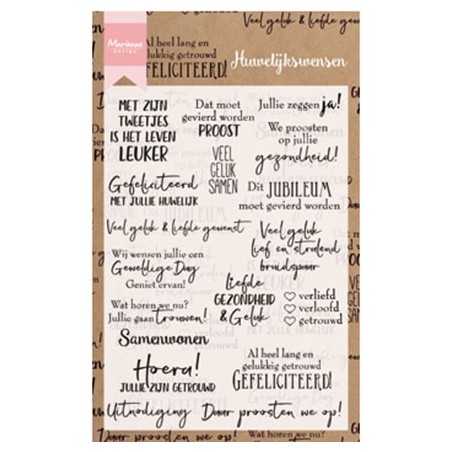 Veel geluk & liefde gewenst
Marianne
DESIGN
Al heel lang en
gelukkig getrouwd
GEFELICITEERD!
Huwelijkswensen
MET ZIJN
TWEETJES
IS HET LEVEN
LEUKER
Dat moet
gevierd worden
PROOST
Jullie zeggen ja!
We proosten
op jullie
gezondheid!
VEEL
GELUK
SAMEN
Gefeliciteerd
MET JULLIE HUWELIJK
Dit JUBILEUM
moet gevierd worden
Veel geluk & liefde gewenst
Veel geluk
lief en stralend
bruidspaar
Wij wensen jullie een
Geweldige Dag
Geniet ervan!
Liefde
GEZONDHEID
& Geluk
verliefd
verloofd
getrouwd
Wat horen we nu?
Jullie gaan trouwen!
Samenwonen
Al heel lang en
gelukkig getrouwd
GEFELICITEERD!
Hoera!
JULLIE ZIJN GETROUWD
Uitnodiging
Daar proosten we op!
Daar proosten we op!
Wat horen we nu?